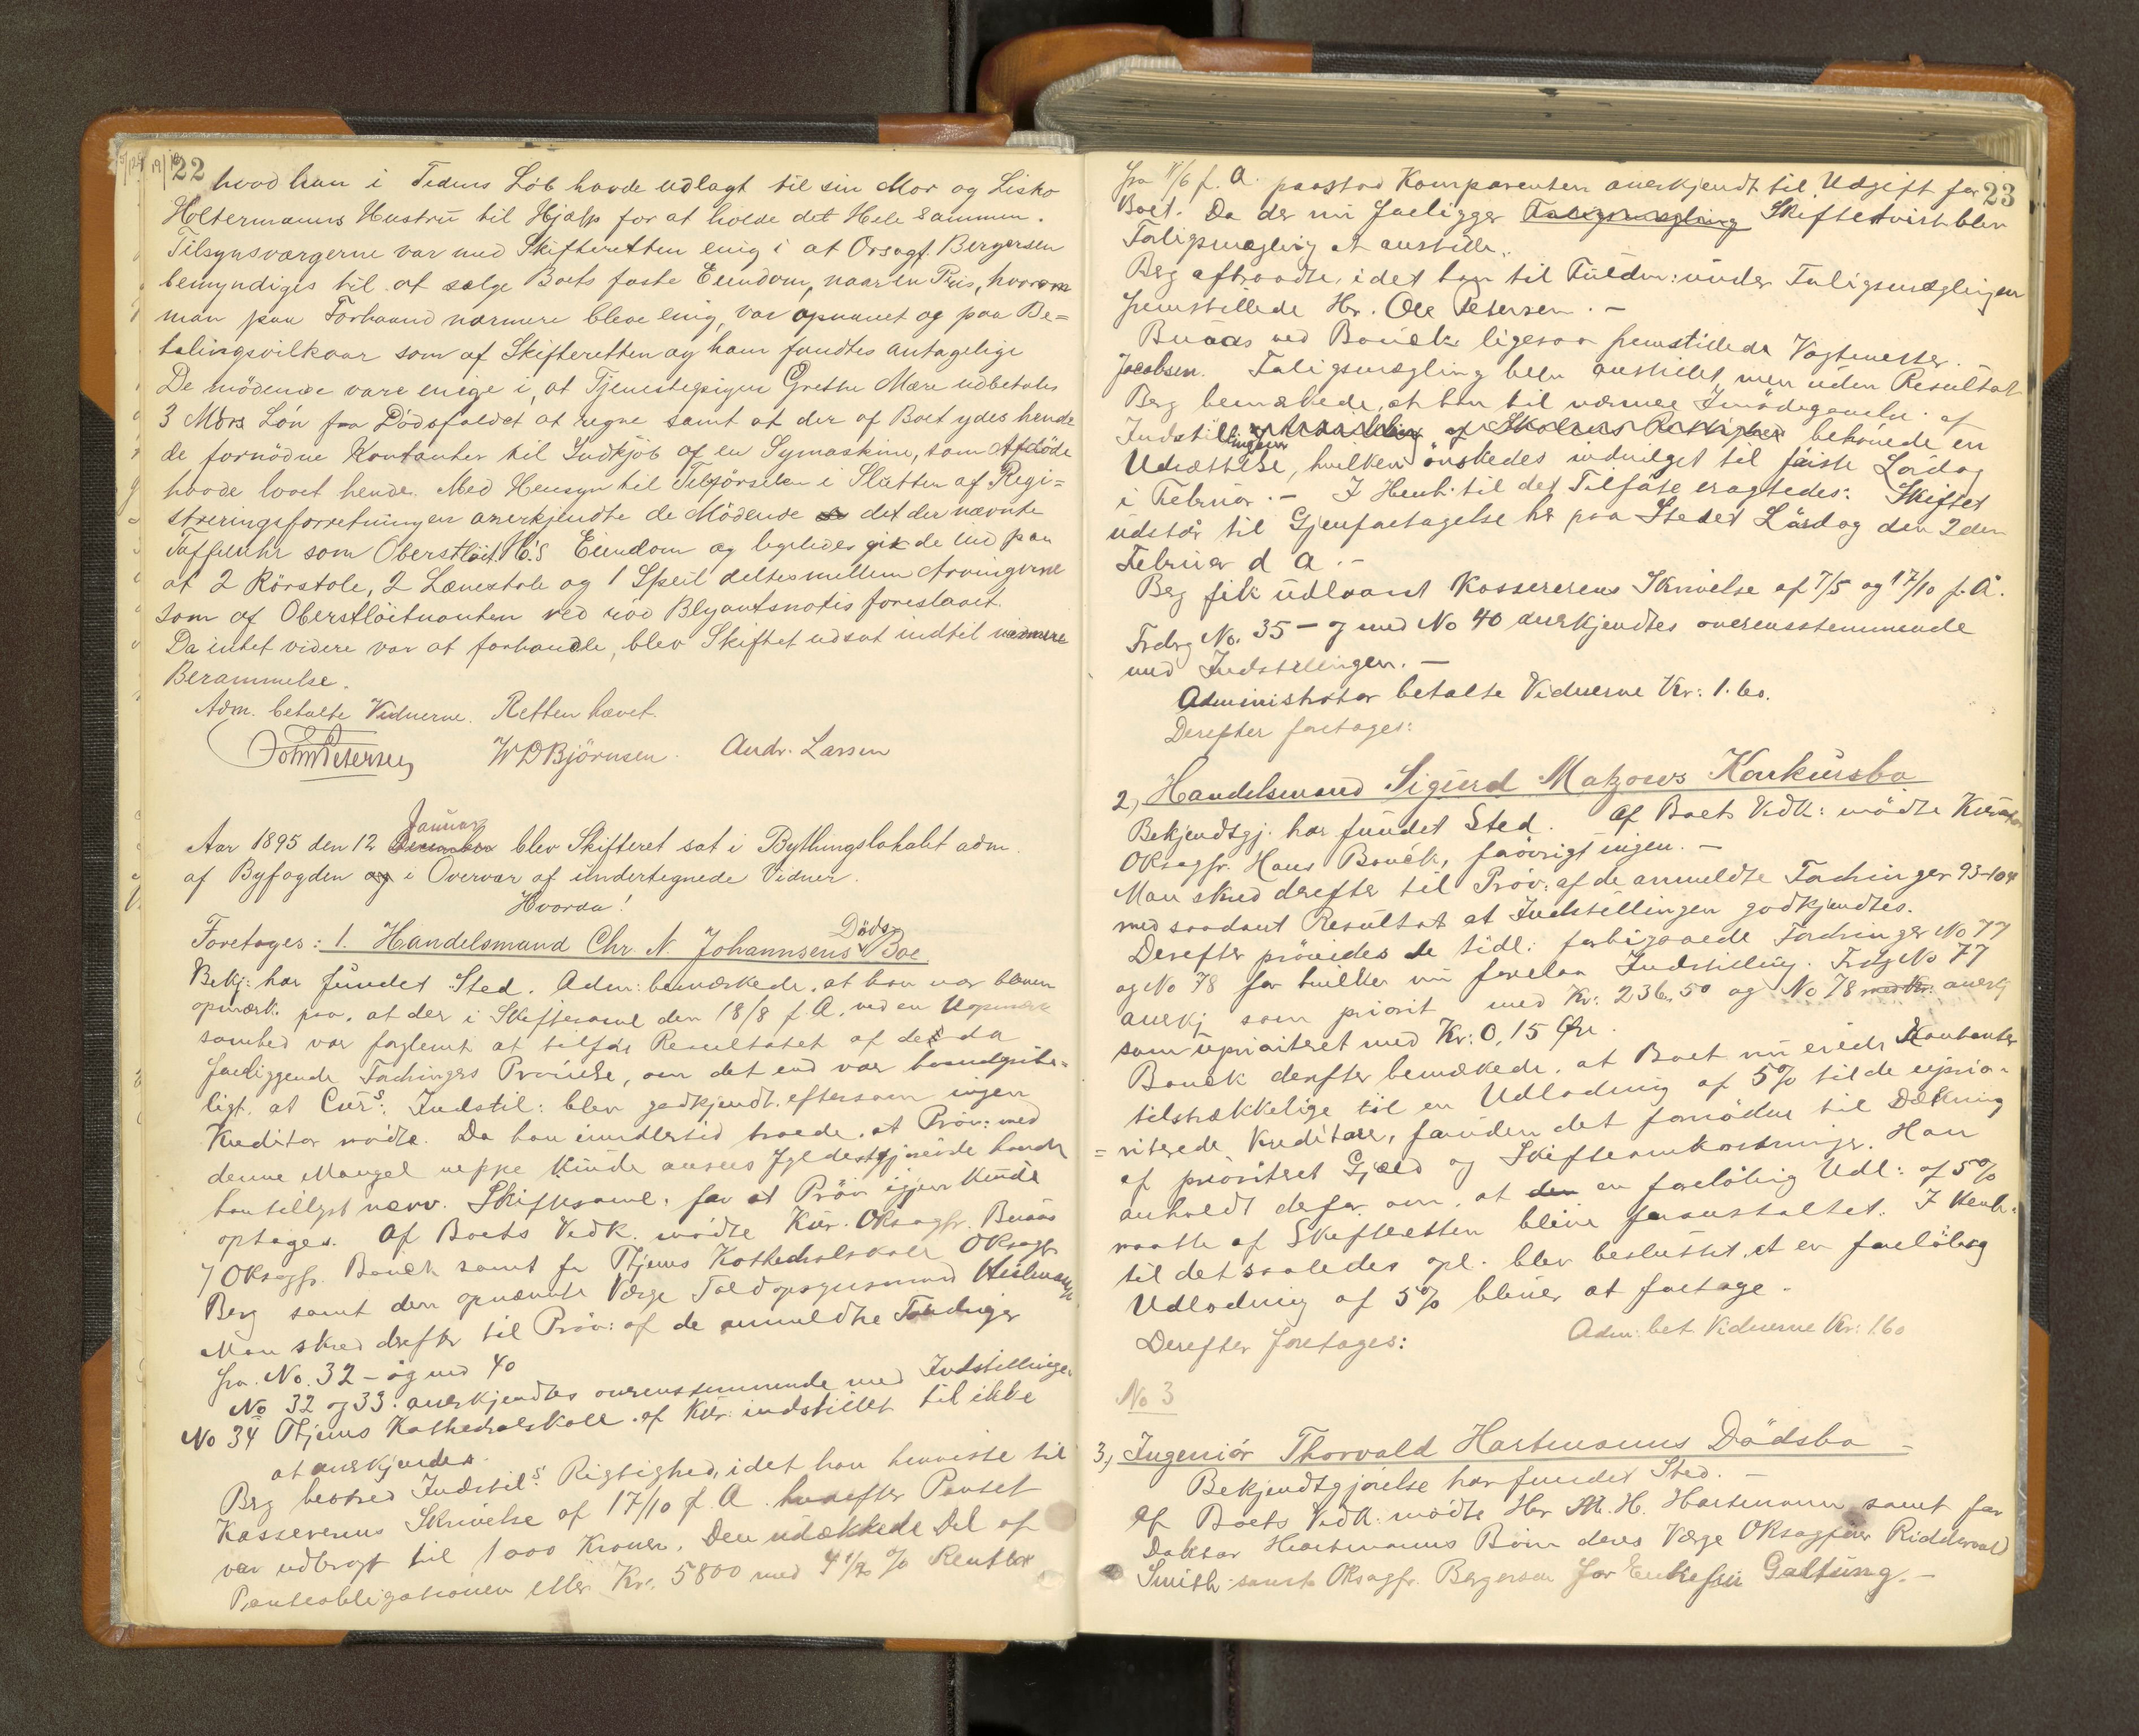 22
hvad han i Tidens Löb havde udlagt til sin Mor og Lisko
Holtermanns Hustru til Hjælp for at holde det Hele sammen.
Tilsynsværgerne var med Skifteretten enig i at Orsagf. Bergersen
bemyndiges til at sælge Boets faste Eiendom, naar en Pris, hvorom
man paa Forhaand nærmere bleve enig, var opnaaet og paa Be=
talingsvilkaar som af Skifteretten og ham fandtes antagelige
De mödende vare enige i, at Tjenestepigen Grethe Mære udbetales
3 Mdrs Lön fra Dödsfaldet at regne samt at der af Boet ydes hende
de fornödne Kontanter til Indkjöb af en Symaskine, som Afdöde
havde lovet hende. Med Hensyn til Tilförselen i Slutten af Regi=
streringsforretningen anerkjendte de Mödende det der nævnte
Taffeluhr som Oberstlöit. H.'s Eiendom og ligeledes gik de ind paa
at 2 Rörstole, 2 Lænestole og 1 Speil deltes mellem Arvingerne
som af Oberstlöitnanten ved rød Blyantsnotis foreslaaet.
Da intet videre var at forhandle, blev Skiftet udsat indtil nærmere
Berammelse.
Adm. betalte Vidnerne. Retten hævet.
John Petersen W D Björnsen. Andr. Larsen
Januar
Aar 1895 den 12 December blev Skifteret sat i Bythingslokalet adm.
af Byfogden og i Overvær af undertegnede Vidner.
Hvorda!
Foretages: 1. Handelsmand Chr. N. Johannsens Döds Boe.
Bekj: har fundet Sted. Adm: bemærkede, at han var bleven
opmærk. paa, at der i Skiftesaml. den 18/8 f. A. ved en Uopmærk
somhed var forglemt at tilföre Resultatet af de da
foreliggende Fordringers Prövelse, om det end var
ligt. at Cur.s: Indstil: blev godkjendt. eftersom ingen
Kreditor mödte. Da han imidlertid troede, at Pröv: med
denne Mangel neppe kunde ansees fyldestgjörende havde
han tillyst nærv. Skiftesaml. for at Pröv igjen kunde
optages. Af Boets Vedk. mödte Kur. Oksagfr. Buaas
Oksagfr. Bauck samt for Thjems Kathedralskole Oksagfr
Berg samt den opnævnte Værge Toldopsynsmand
Man skred derefter til Pröv: af de anmeldte Fordringer
fra. No. 32 - og med 40
No 32 og 33. anerkjendtes overensstemmende med Indstillingen
No 34 Thjems Kathedralskole. af Kur. indstillet til ikke
at anerkjendes.
Berg bestred Indstil.s Rigtighed, idet han henviste til
Kassererens Skrivelse af 17/10 f. A. hvorefter Pantet
var udbragt til 1000 Kroner. Den udækkede Del af
Panteobligationen eller Kr. 5800 med 4 1/2 % Renter
23
fra 11/6 f. A. paastod Komparenten anerkjendt til Udgift for
Boet. Da der nu foreligger Forligsmægling Skiftetvist blev
Forligsmægling at anstille.
Berg aftraadte, idet han til Fuldm: under Forligsmæglingen
fremstillede Hr. Ole Petersen. -
Buaas ved Bauck ligesaa fremstillede Vagtmester
Jacobsen. Forligsmægling blev anstillet, men uden Resultat
Berg bemærkede, at han til nærmere Imödegaaelse af
Indstillingen behövede en
Udsættelse, hvilken önskedes indvilget til förste Lördag
i Februar. - I Henh: til det Tilförte eragtedes: Skiftet
udstaar til Gjenforetagelse her paa Stedet Lördag den 2den
Februar d A. -
Berg fik udlaant Kassererens Skrivelse af 7/5 og 17/10 f. A.
Frdrg No. 35 - og med No 40 anerkjendtes overensstemmende
med Indstillingen. -
Administrator betalte Vidnerne Kr: 1.60.
Derefter foretages:
2, Handelsmand Sigurd Matzows Konkursbo
Bekjendtgj. har fundet Sted. Af Boets Vedk: mödte Kurator
Oksagfr. Hans Bauck, forövrigt ingen. -
Man skred derefter til Pröv: af de anmeldte Fordringer 93-104
med saadant Resultat at Indstillingen godkjendtes.
Derefter prövedes de tidl: forbigaaede Fordringer No 77
og No 78 for hvilke nu forelaa Indstilling. Frdg No 77
anerkj som priorit med Kr: 236,50 og No 78 med Kr: anerkj
som uprioriteret med Kr: 0,15 Øre.
Bauck derefter bemærkede, at Boet nu eiede Kontanter
tilstrækkelige til en Udlodning af 5% til de uprio-
= riterede Kreditorer, foruden det fornödne til Dækning
af prioriteret Gjæld og Skifteomkostninger. Han
anholdt derfor om, at den en foreløbig Udl: af 5%
maatte af Skifteretten blive foranstaltet. I Henh:
til det saaledes opl. blev besluttet at en foreløbig
Udlodning af 5% bliver at foretage.
Adm: bet. Vidnerne Kr: 1.60
Derefter foretages:
No 3
3, Ingeniör Thorvald Hartmanns Dödsbo -
Bekjendtgjörelse har fundet Sted. -
Af Boets Vedk. mödte Hr M. H. Hartmann samt for
Doktor Hartmanns Börn deres Værge Oksagförer Riddervold
Smith samt Oksagfr. Bergersen for Enkefru Galtung. -